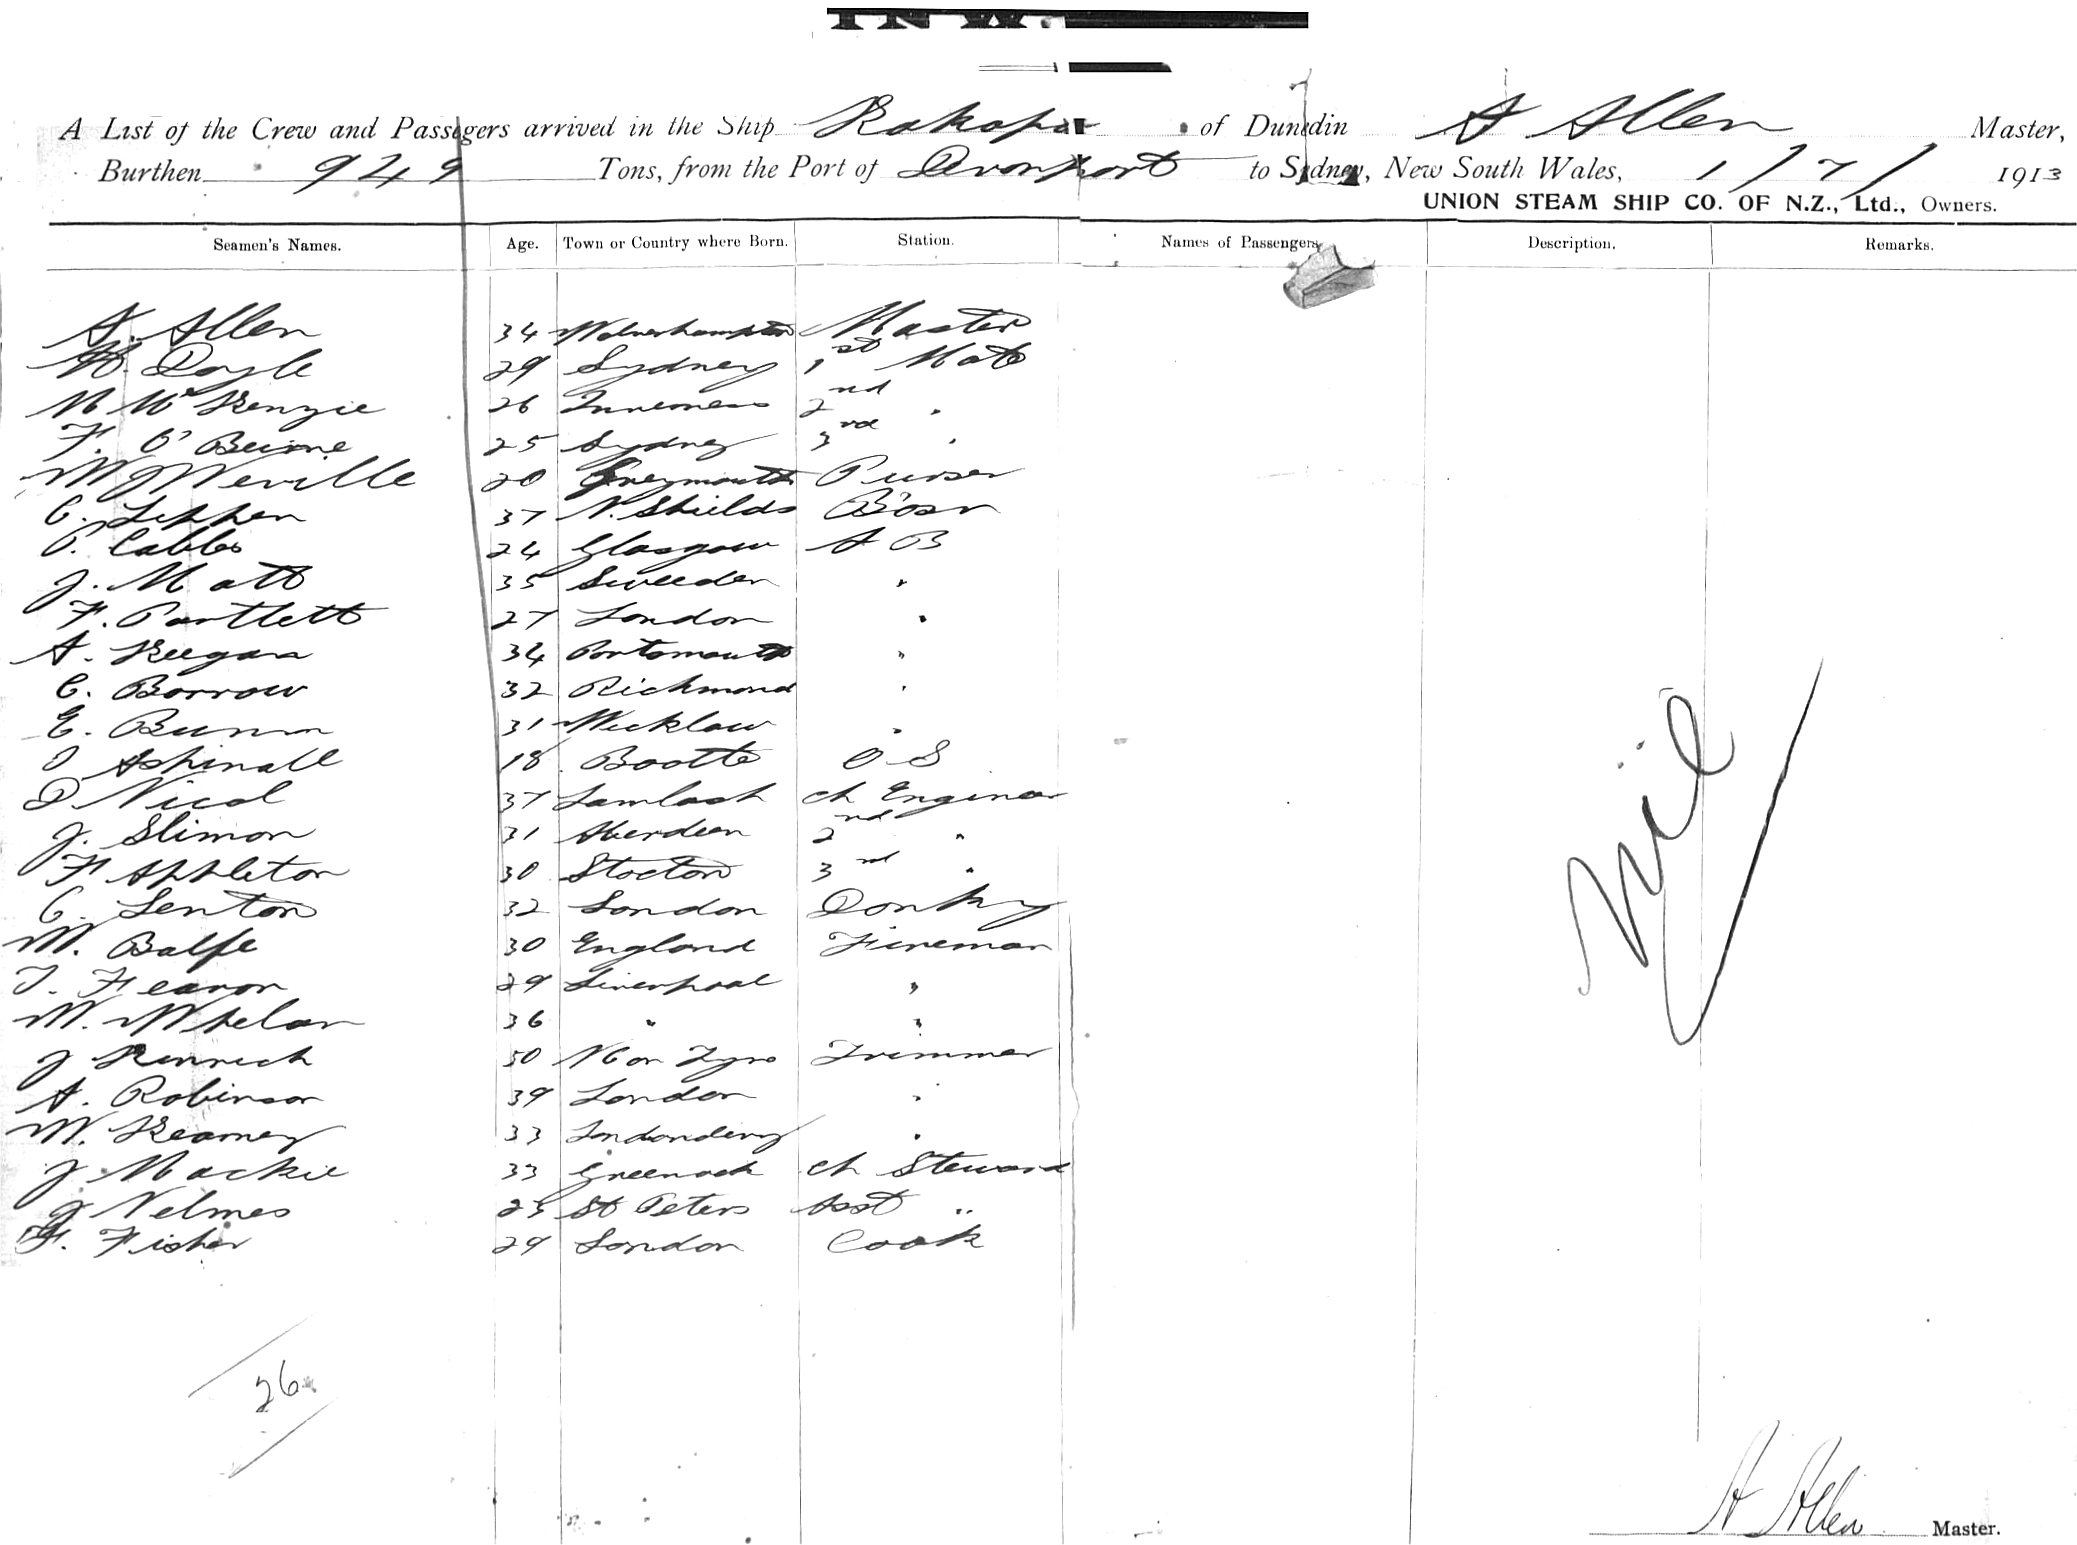 A List of the Crew and Passegers arrived in the Ship Kakapo of Dunedin A Allen Master,
Burthen 949 Tons, from the Port of Devonport to Sydney, New South Wales, 1/7/1913
UNION STEAM SHIP CO. OF N.Z., Ltd., Owners.
Seamen's Names. Age. Town or Country where Born. Station. Names of Passengers Description. Remarks.
A. Allen 34 Wolverhampton Master
W. Doyle 29 Sydney 1st Mate
N McKenzie 26 Inverness 2nd "
F. O'Beirne 25 Sydney 3rd "
W J Neville 20 Greymouth Purser
C. Lephen 37 N. Shields Bosn
P. Cables 24 Glasgow A B
J. Matt 35 Sweeden "
F. Partlett 27 London "
A. Keegan 34 Portsmouth "
C. Borrow 32 Richmond "
E. Bunn 31 Wicklow "
J Aspinall 18 Bootle O S
D Nicol 37 Lamlash ch Engineer
J. Slimon 31 Aberdeen 2nd "
F Appleton 30 Stocton 3rd "
C. Lenton 32 London Donky
M. Balfe 30 England Fireman
T. Fearon 29 Liverpool "
W. Whelan 36 " "
J Kenrick 50 N on Tyne Trimmer
A. Robinson 39 London "
W. Kearney 33 Londonderry "
J Mackie 33 Greenock ch Steward
J Nelmes 23 St Peters Asst "
F. Fisher 29 London Cook
Nil
26
A Allen Master.